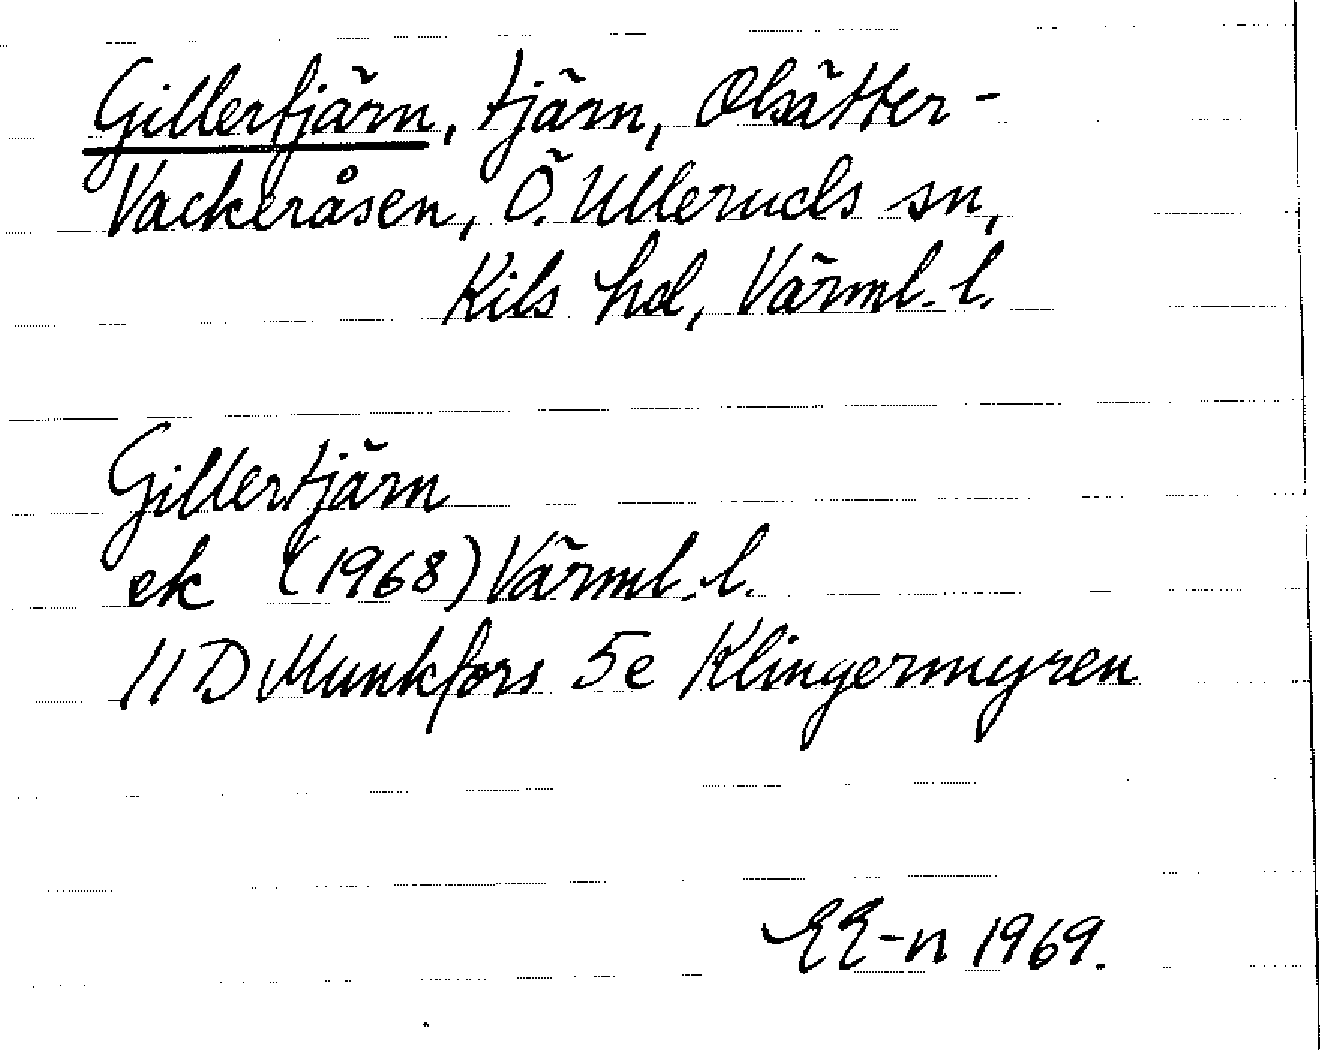 Gillertjärn, tjärn, Olsätter-
Vackeråsen, Ö. Ulleruds sn,
Kils hd, Värml. l.
Gillertjärn
ek (1968) Värml. l.
11 D Munkfors 5e Klingermyren
EE-n 1969.